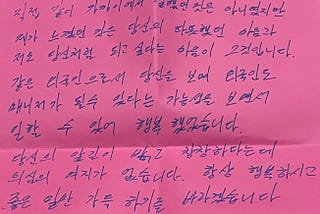 직접 같이 가까이에서 일했던 것은 아니였지만
제가 느꼈던 것은 당신의 따듯했던 마음과
저도 당신처럼 되고 싶다는 마음이 그것입니다.
같은 외국인으로서 당신을 보며 외국인도
매니저가 될수 있다는 가능성을 보면서
일할 수 있어 행복 했었습니다.
당신의 앞길이 밝고 창창하다는데
의심의 여지가 없습니다. 항상 행복하시고
좋은 일만 가득 하기를 바라겠습니다